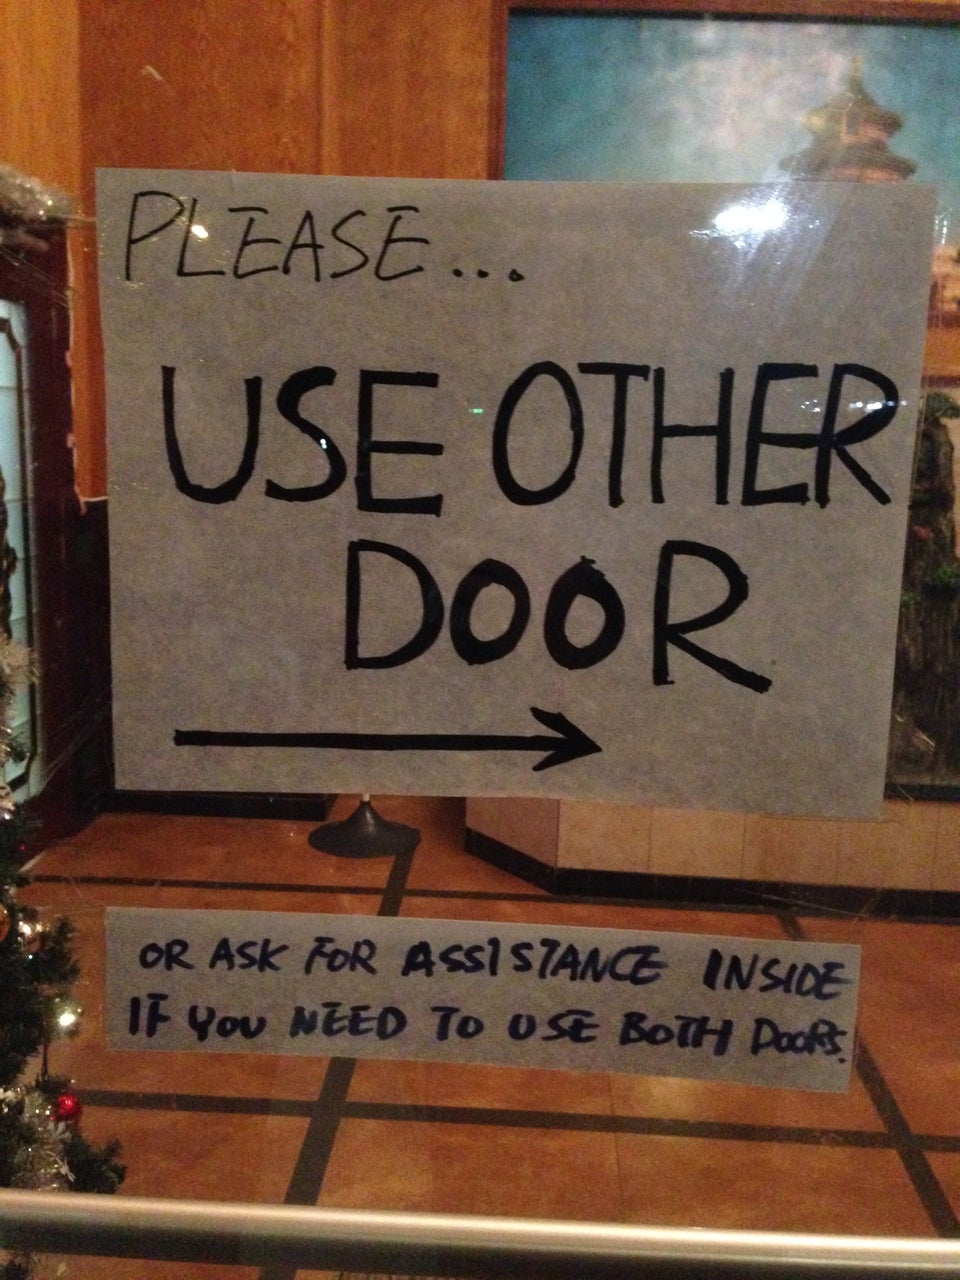 PLEASE...
USE OTHER
DOOR
OR ASK FOR ASSISTANCE INSIDE
IF YOU NEED TO USE BOTH DOORS.